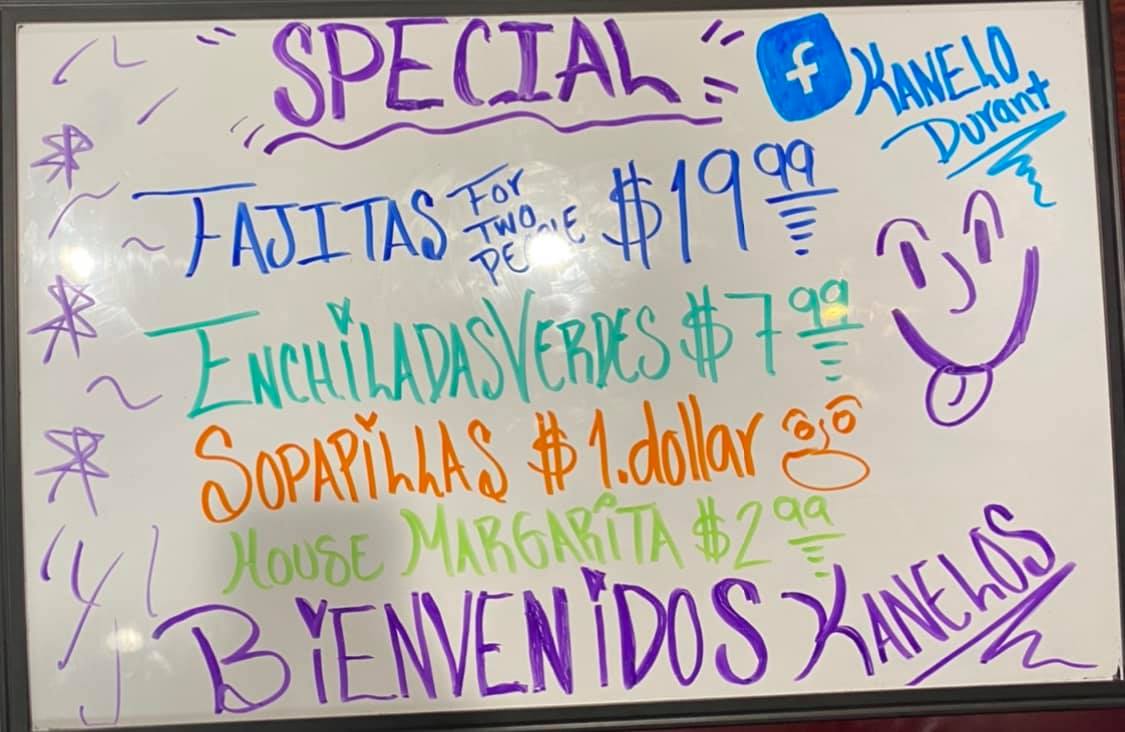 SPECIAL
f KANELO
Durant
FAJITAS FOR TWO PEOPLE $19 99
ENCHILADAS VERDES $7 99
SOPAPILLAS $1.dollar
HOUSE MARGARITA $2 99
BIENVENIDOS KANELOS